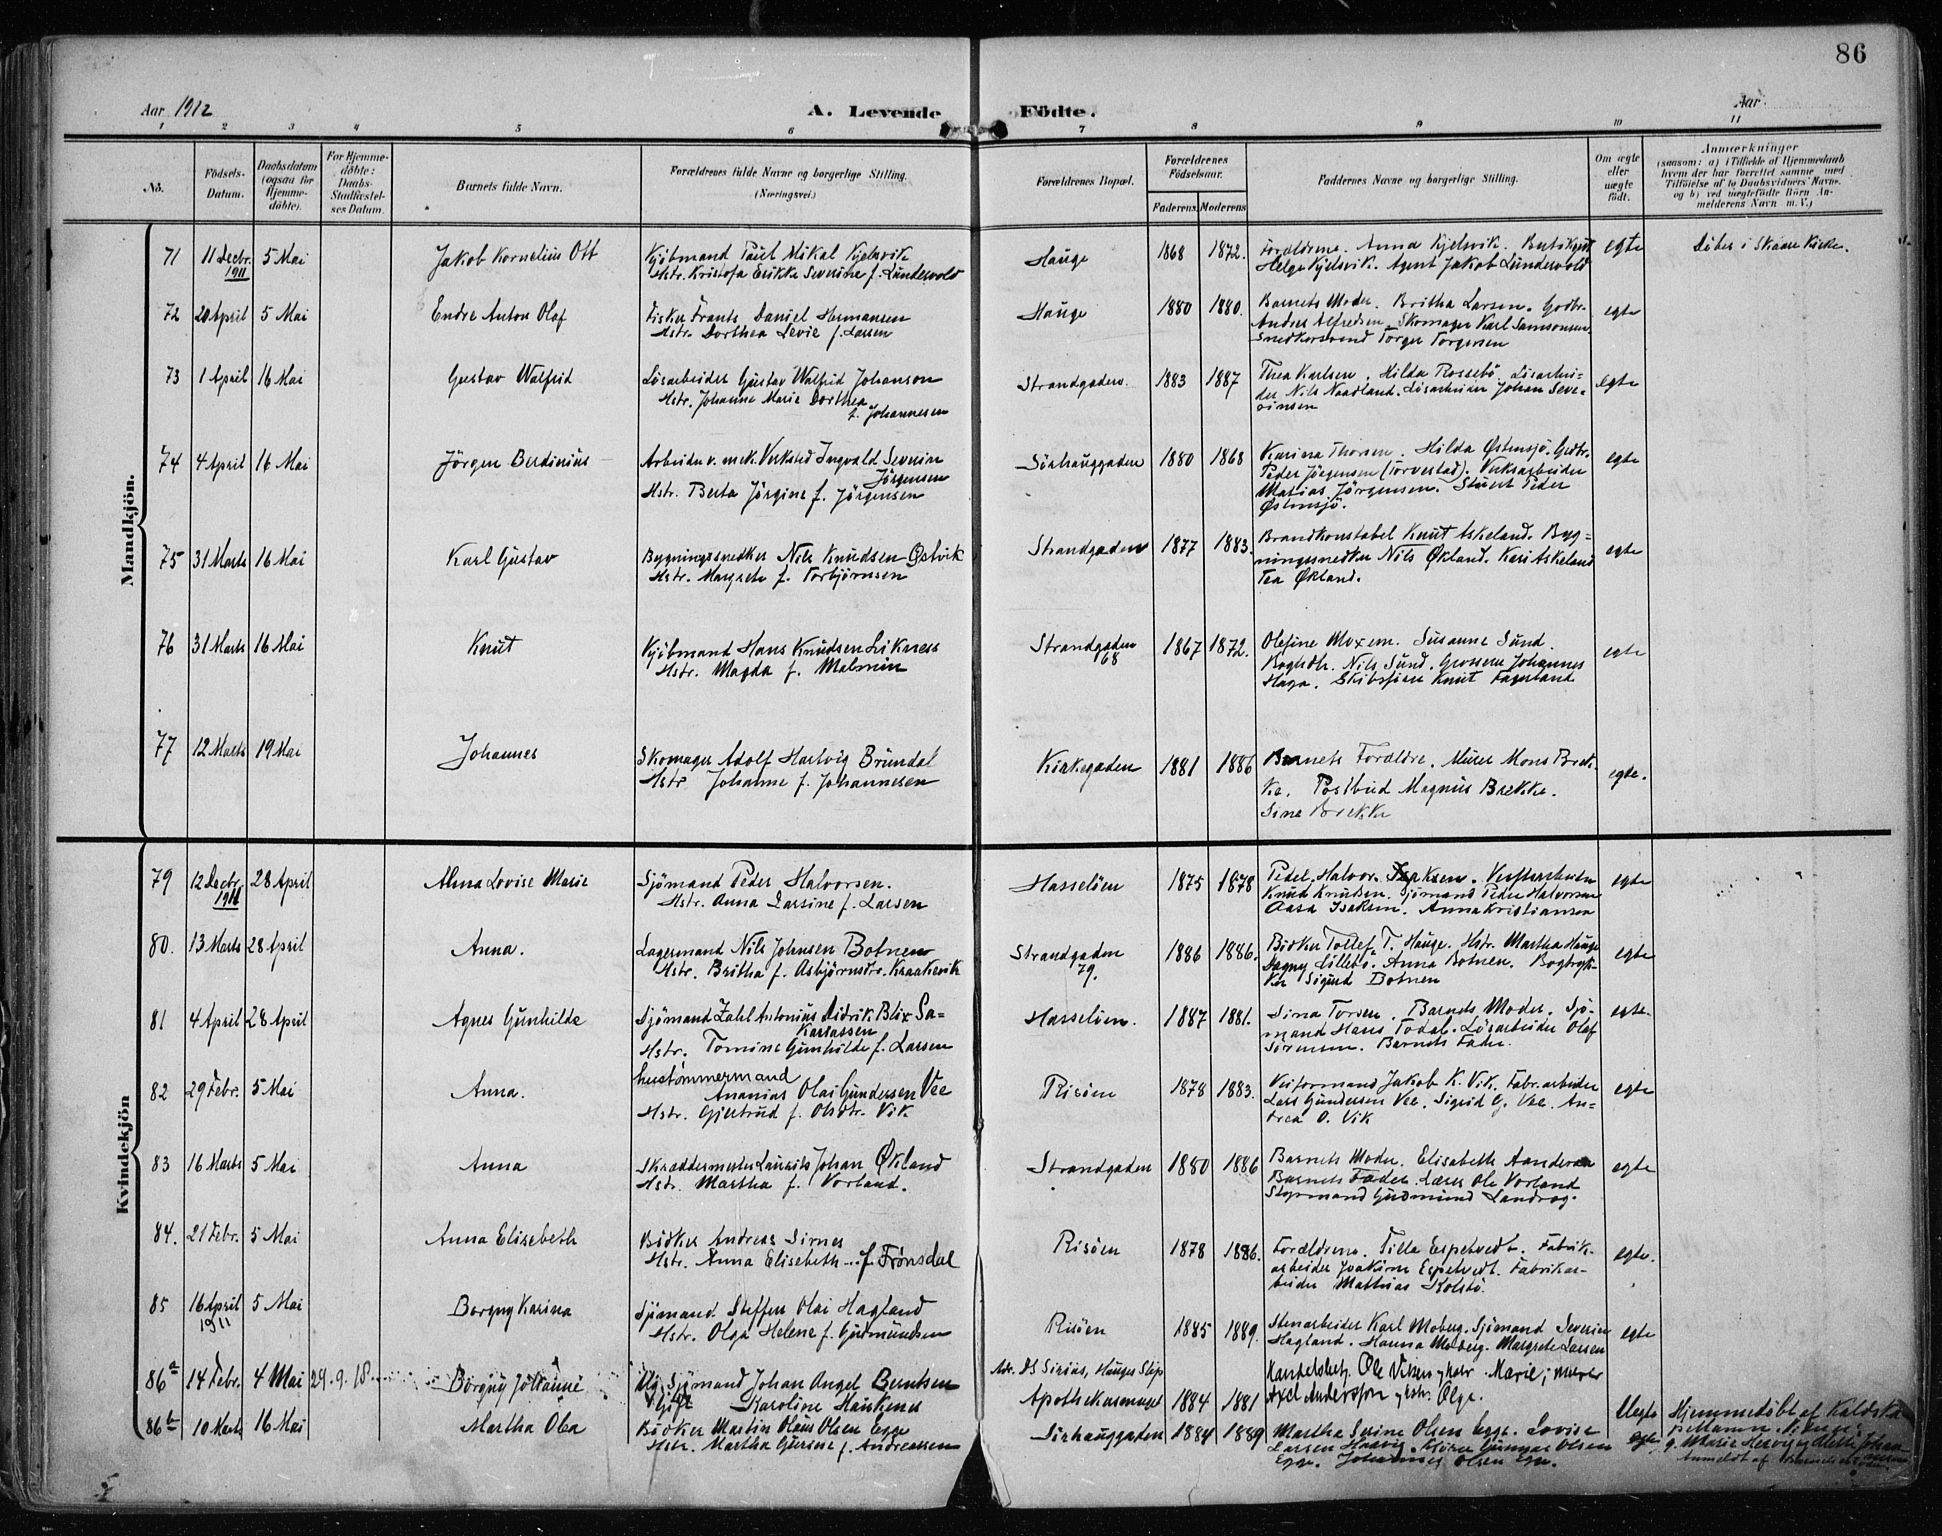 86
Aar 1912
A. Levende Födte.
Aar
1 2 3 4 5 6 7 8 9 10 11
No.
Födsels-
Datum.
Daabsdatum
(ogsaa for
Hjemme-
döbte).
For Hjemme-
döbte:
Daabs-
Stadfæstel-
ses Datum.
Barnets fulde Navn.
Forældrenes fulde Navne og borgerlige Stilling.
(Næringsvei.)
Forældrenes Bopæl.
Forældrenes
Födselsaar.
Faderens. Moderens
Faddernes Navne og borgerlige Stilling.
Om ægte
eller
uægte
födt.
Anmærkninger
(saasom: a) i Tilfælde af Hjemmedaab
hvem der har forrettet samme med
Tilföielse af to Daabsvidners Navne.
og b) ved uægtefödte Börn An-
melderens Navn m. V.)
Mandkjön.
71 11 Decbr. 1911 5 Mai Jakob Kornelius Ott
Kjöbmand Paul Mikal Kjelsvik
Hstr. Kristofa Erikke Severine f. Lundevold
Hauge 1868 1872.
Forældrene. Anna Kjelsvik.
Helge Kjelsvik. Agent Jakob Lundevold
egte
Döbt i Skaare Kirke.
72 20 April 5 Mai Endre Anton Olaf
Fisker Frants Daniel Hermansen
Hstr. Dorthea Levie f. Larsen
Hauge 1880 1880.
Barnets Moder. Britha Larsen. Gedbr.
Anders Alfredsen. Skomager Karl Samsonsen
Snedkersvend Torger Torgersen
egte
73 1 April 16 Mai Gustav Walfrid
Lösarbeider Gustav Walfrid Johanson
Hstr. Johanne Marie Dorthea
f. Johannesen
Strandgaden. 1883 1887
Thea Karlsen. Hilda Rossebö. Lösarbei-
der Nils Naadland. Lösarbeider Johan Seve-
rinsen
egte
74 4 April 16 Mai Jörgen Berdinius
Arbeider v. mek. Verksted Ingvald Severin
Jörgensen
Hstr. Berta Jörgine f. Jörgensen
Sörhauggaden 1880 1868
Karina Thorsen. Hilda Østensjö. Gedbr.
Peder Jörgensen (Torvestad). Verksarbeider
Matias Jörgensen. Stuert Peder
Østensjö.
egte
75 31 Marts 16 Mai Karl Gustav
Bygningssnedker Nils Knudsen Østvik
Hstr. Margrete f. Torbjörnsen
Strandgaden 1877 1883.
Brandkonstabel Knut Askeland. Byg-
ningssnedker Nils Økland. Kari Askeland
Tea Økland.
egte
76 31 Marts 16 Mai Knut
Kjöbmand Hans Knudsen Liknes
Hstr. Magda f. Malmin
Strandgaden
68 1867 1872.
Olefine Moxem. Susanne Sund.
Boghdlr. Nils Sund. Grosserer Johannes
Haga. Skibsförer Knut Fagerland
egte
77 12 Marts 19 Mai Johannes
Skomager Adolf Hartvig Bründal
Hstr Johanne f. Johannesen
Kirkegaden 1881 1886
Barnets Forældre. Murer Mons Brek-
ke. Postbud Magnus Brekke.
Sine Brekke
egte.
Kvindekjön
79 12 Decbr. 1911 28 April Alma Lovise Marie
Sjömand Peder Halvorsen.
Hstr. Anna Larsine f. Larsen
Hasselöen 1875 1878
Peder Halvor Isaksen. Verftsarbeider
Knud Knudsen. Sjömand Peder Halvorsen
Aasa Isaksen. Anna Kristiansen
egte
80. 13 Marts 28 April Anna.
Lagermand Nils Johnsen Botnen
Hstr. Britha f. Asbjörnsdr. Kraakevik
Strandgaden
79. 1886 1886.
Bödker Tollef T. Hauge. Hstr. Martha Hauge
Dagny Lillebö. Anna Botnen. Bogtryk-
ker Sigurd Botnen
egte
81 4 April 28 April Agnes Gunhilde
Sjömand Zahl Antonius Didrik Blix Sa-
kariassen
Hstr. Tomine Gunhilde f. Larsen
Hasselöen. 1887 1881.
Sina Torsen. Barnets Moder. Sjö-
mand Hans Todal. Lösarbeider Olaf
Sörensen. Barnets Fader.
egte.
82 29 Febr. 5 Mai Anna.
hustömmermand
Ananias Olai Gundersen Vee
Hstr. Gjertrud f. Olsdtr. Vik
Risöen 1878 1883.
Verformand Jakob K. Vik. Fabr. arbeider
Lars Gundersen Vee. Sigrid G. Vee. An-
drea O. Vik
egte
83 16 Marts 5 Mai Anna
Skræddermester Laurits Johan Økland
Hstr. Martha f. Vorland.
Strandgaden 1880 1886
Barnets Moder. Elisabeth Aandersen
Barnets Fader. Lærer Ole Vorland
Styrmand Gudmund Landrog.
egte
84. 21 Febr. 5 Mai Anna Elisebeth
Bödker Andreas Sirnes
Hstr. Anna Elisebeth f. Frønsdal
Risöen 1878 1886.
Forældrene. Tilla Espetvedt. Fabrik-
arbeider Joakim Espetvedt. Fabrikar-
beider Mathias Kolstö.
egte.
85 16 April 1911 5 Mai Borgny Karina
Sjömand Steffen Olai Hagland
Hstr. Olga Helene f. Gudmundsen
Risöen 1885 1889.
Stenarbeider Karl Moberg. Sjömand Severin
Hagland. Hanna Moberg. Margrete Larsen
egte
86a 14 Febr. 4 Mai 29.9.18 Borgny Johanne
Ug. Sjömand Johan Angel Berntsen
Gift Karoline Haukenes
Adr. DS Sirius, Hauges Skip
Apothekersmuget 1884 1881
Handelsbetj. Ole Viksen og Hstr. Marie; murer
Axel Andersson og hstr. Olga.
Uegte
86b 10 Marts 16 Mai Martha Olea
Bödker Martin Olaus Olsen Egge
Hstr. Martha Gurine f. Andreassen
Sörhauggaden 1884 1889
Martha Serine Olsen Egge. Lovise
Larsen Haavig. Gunnar Olsen
Egge. Johannes Olsen Egge.
egte
Hjemmedöbt af
Anmeldt af